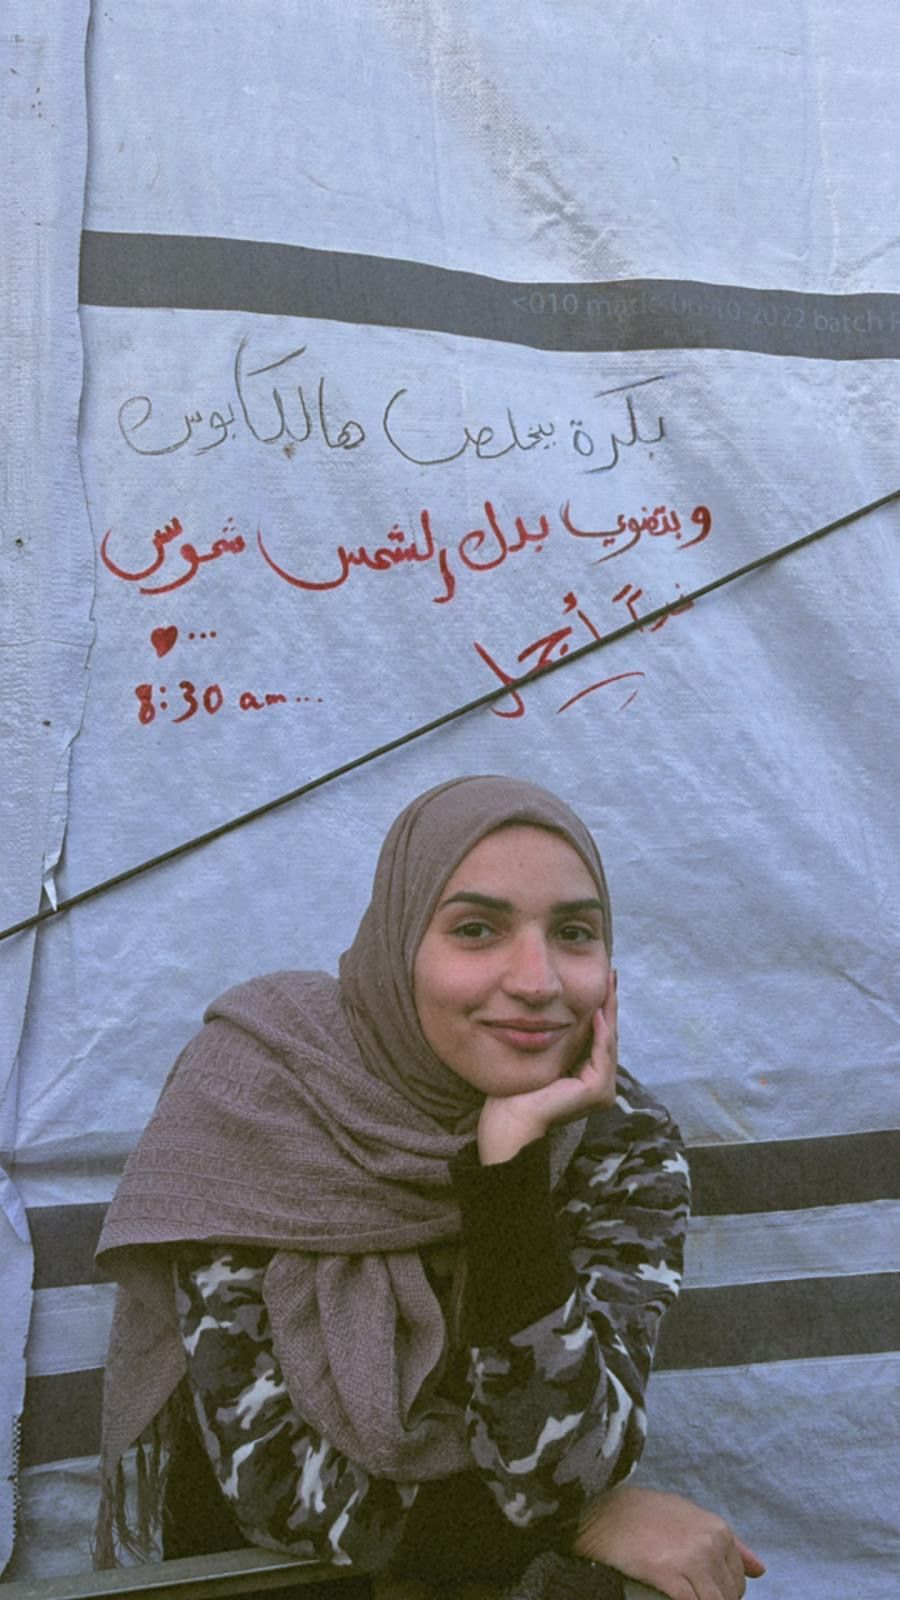 <010 made 06-10-2022 batch
بكرة بيخلص هالكابوس
وبتضوي بدل الشمس شموس
غداً أجمل
♥...
8:30 am...